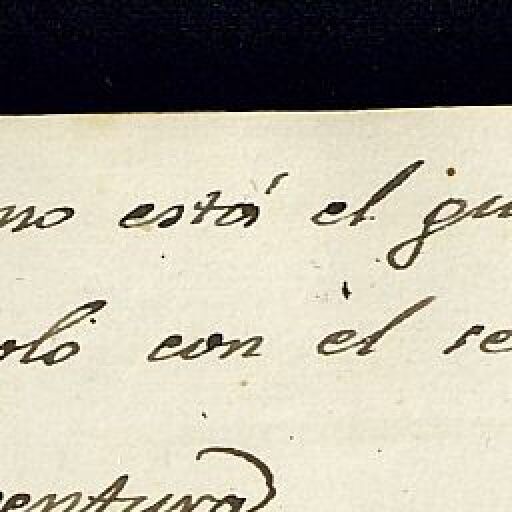 no está el gu
olo con el se
entura